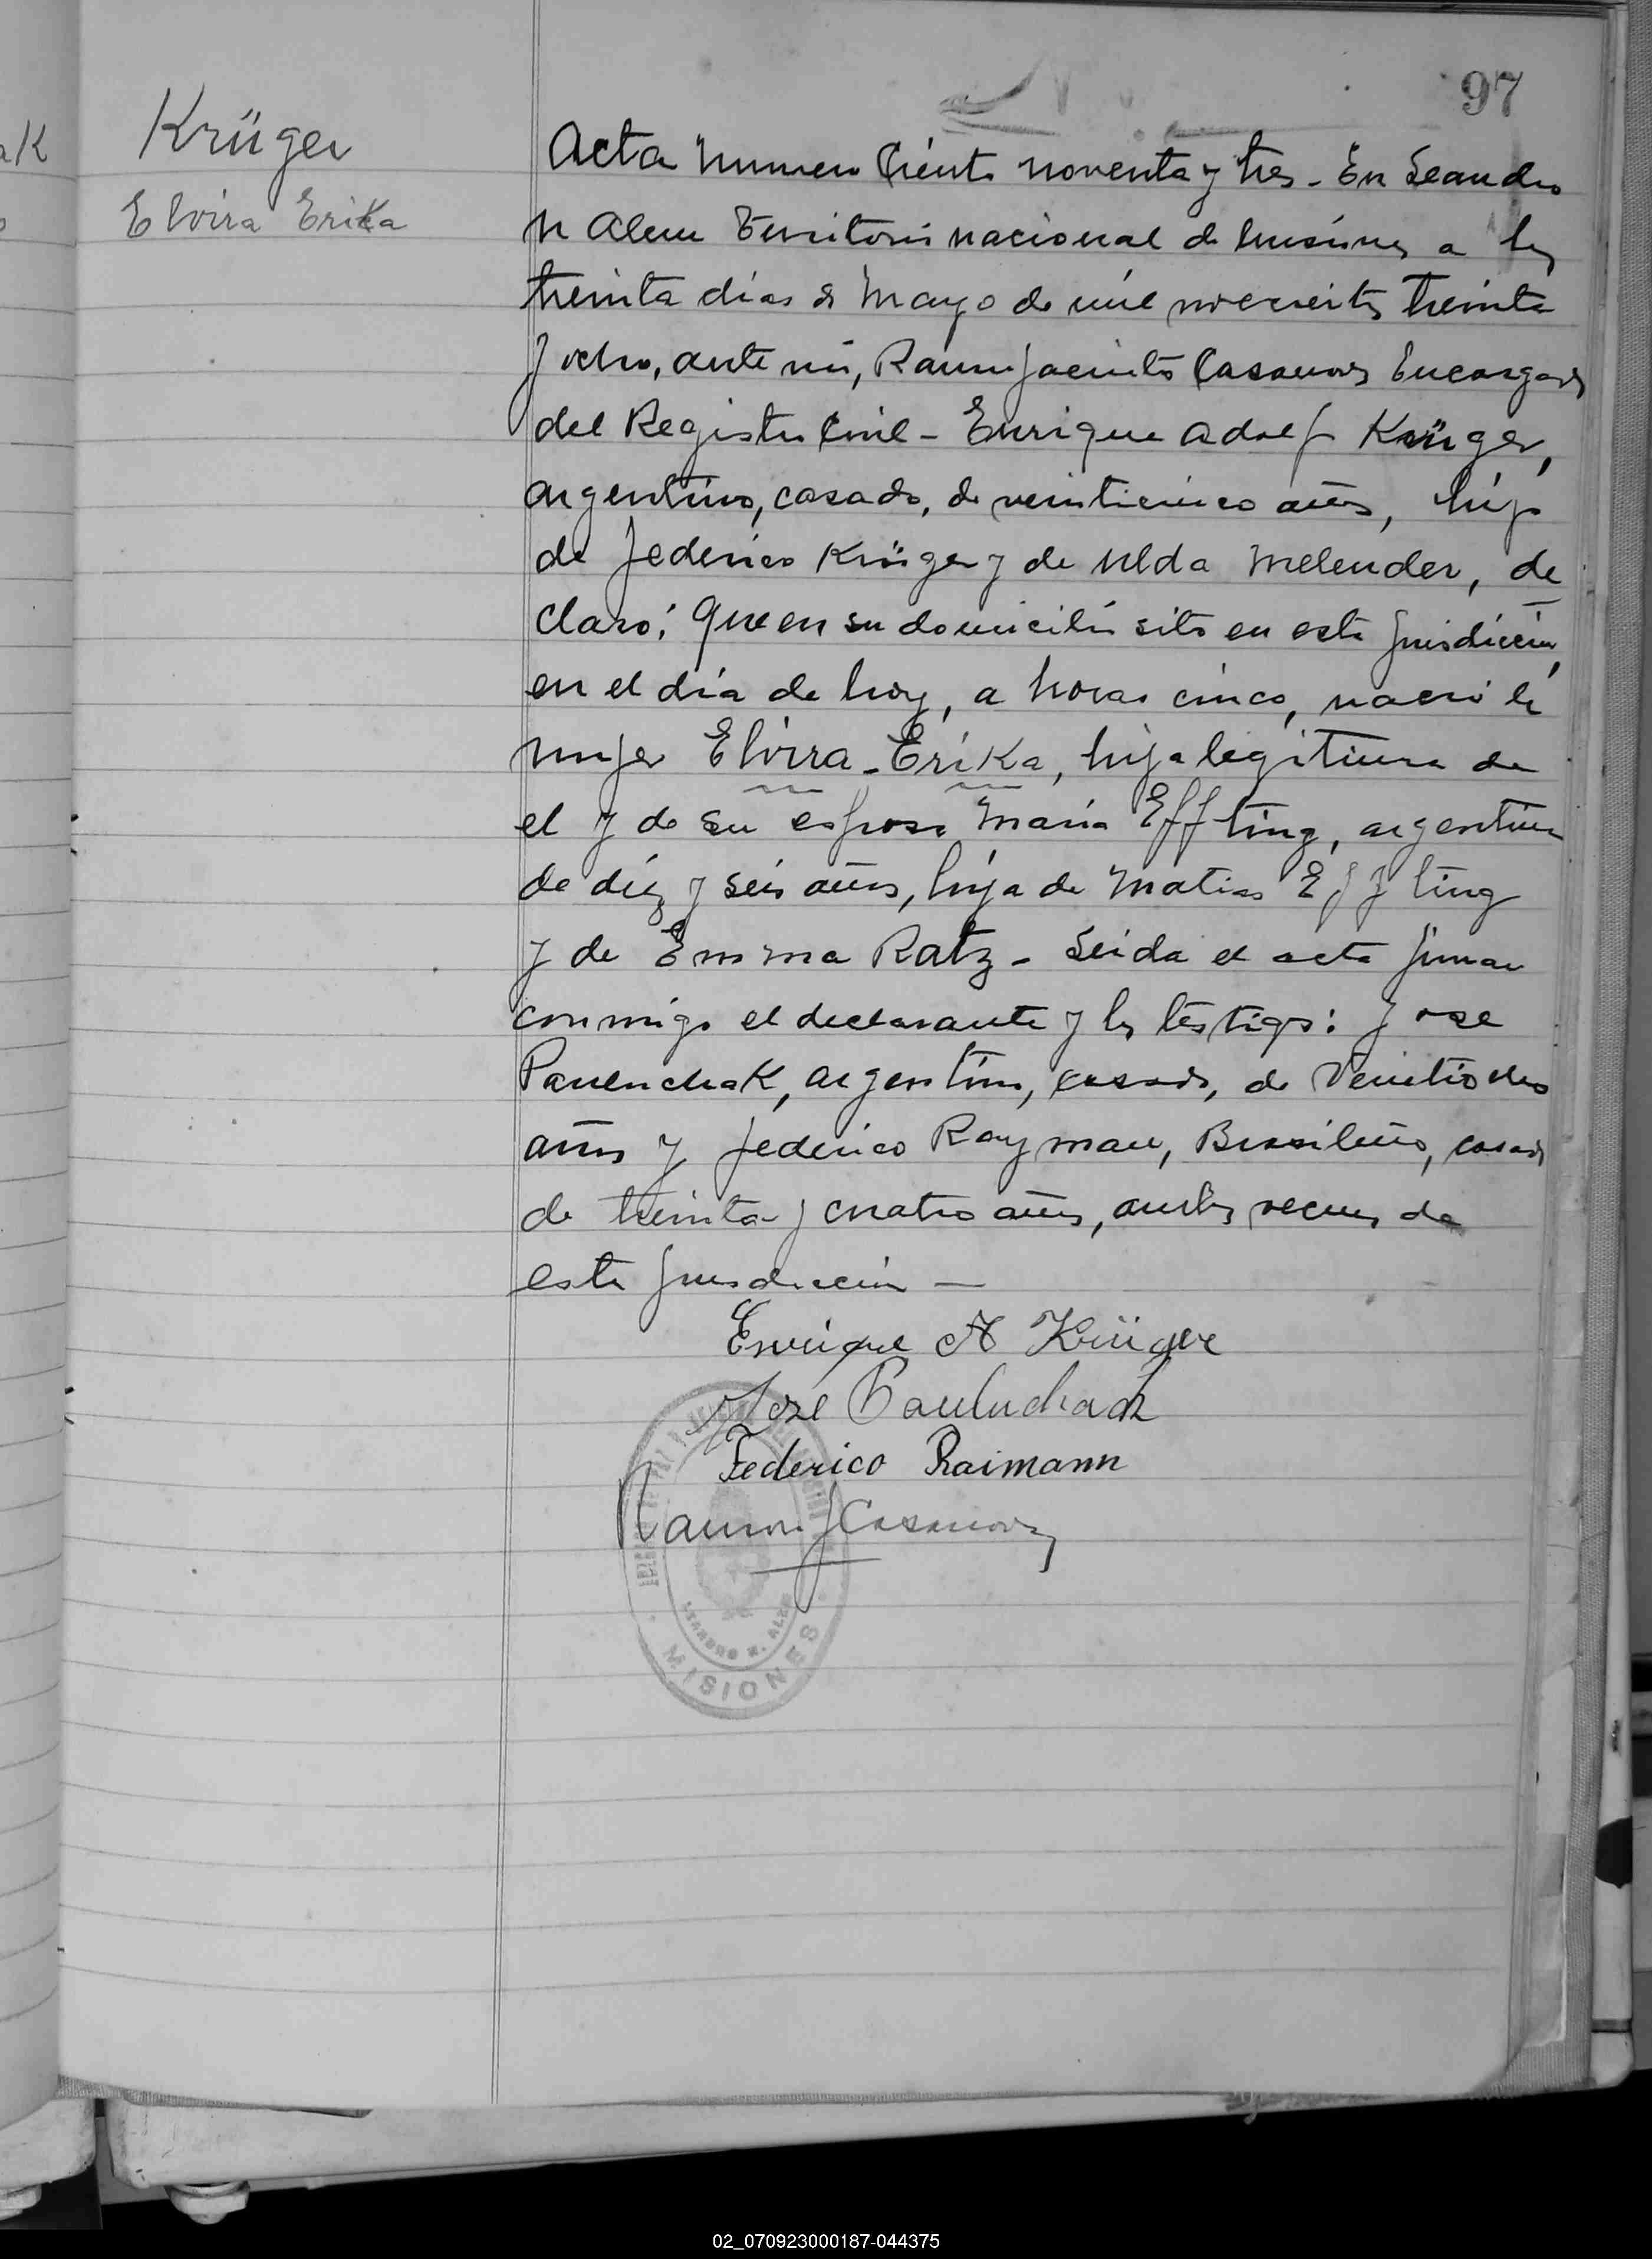 97
aK
Krüger
Elvira Erika
Acta numero Ciento noventa y tres - En Leandro
N Alem Territorio nacional de Misiones a los
treinta días de Mayo de mil novecientos treinta
y ocho, ante mí, Ramon Jacinto Casanova Encargado
del Registro Civil - Enrique Adolfo Krüger,
argentino, casado, de veinticinco años, hijo
de Federico Krüger y de Ulda Melender, de
claró: Que en su domicilio sito en esta jurisdicción,
en el día de hoy, a horas cinco, nació la
mujer Elvira-Erika, hija legitima de
el y de su esposa María Effting, argentina
de diez y seis años, hija de Matias Effting
y de Emma Ratz - Leida el acta firman
conmigo el declarante y los testigos: Jose
Panenchak, argentino, casado, de Veintiocho
años y Federico Rayman, Brasileño, casado
de treinta y cuatro años, ambos vecinos de
esta jurisdicción —
Enrique A Krüger
Jose
Federico Raimann
Ramon J Casanova
LEANDRO N. ALEM
MISIONES
02_070923000187-044375